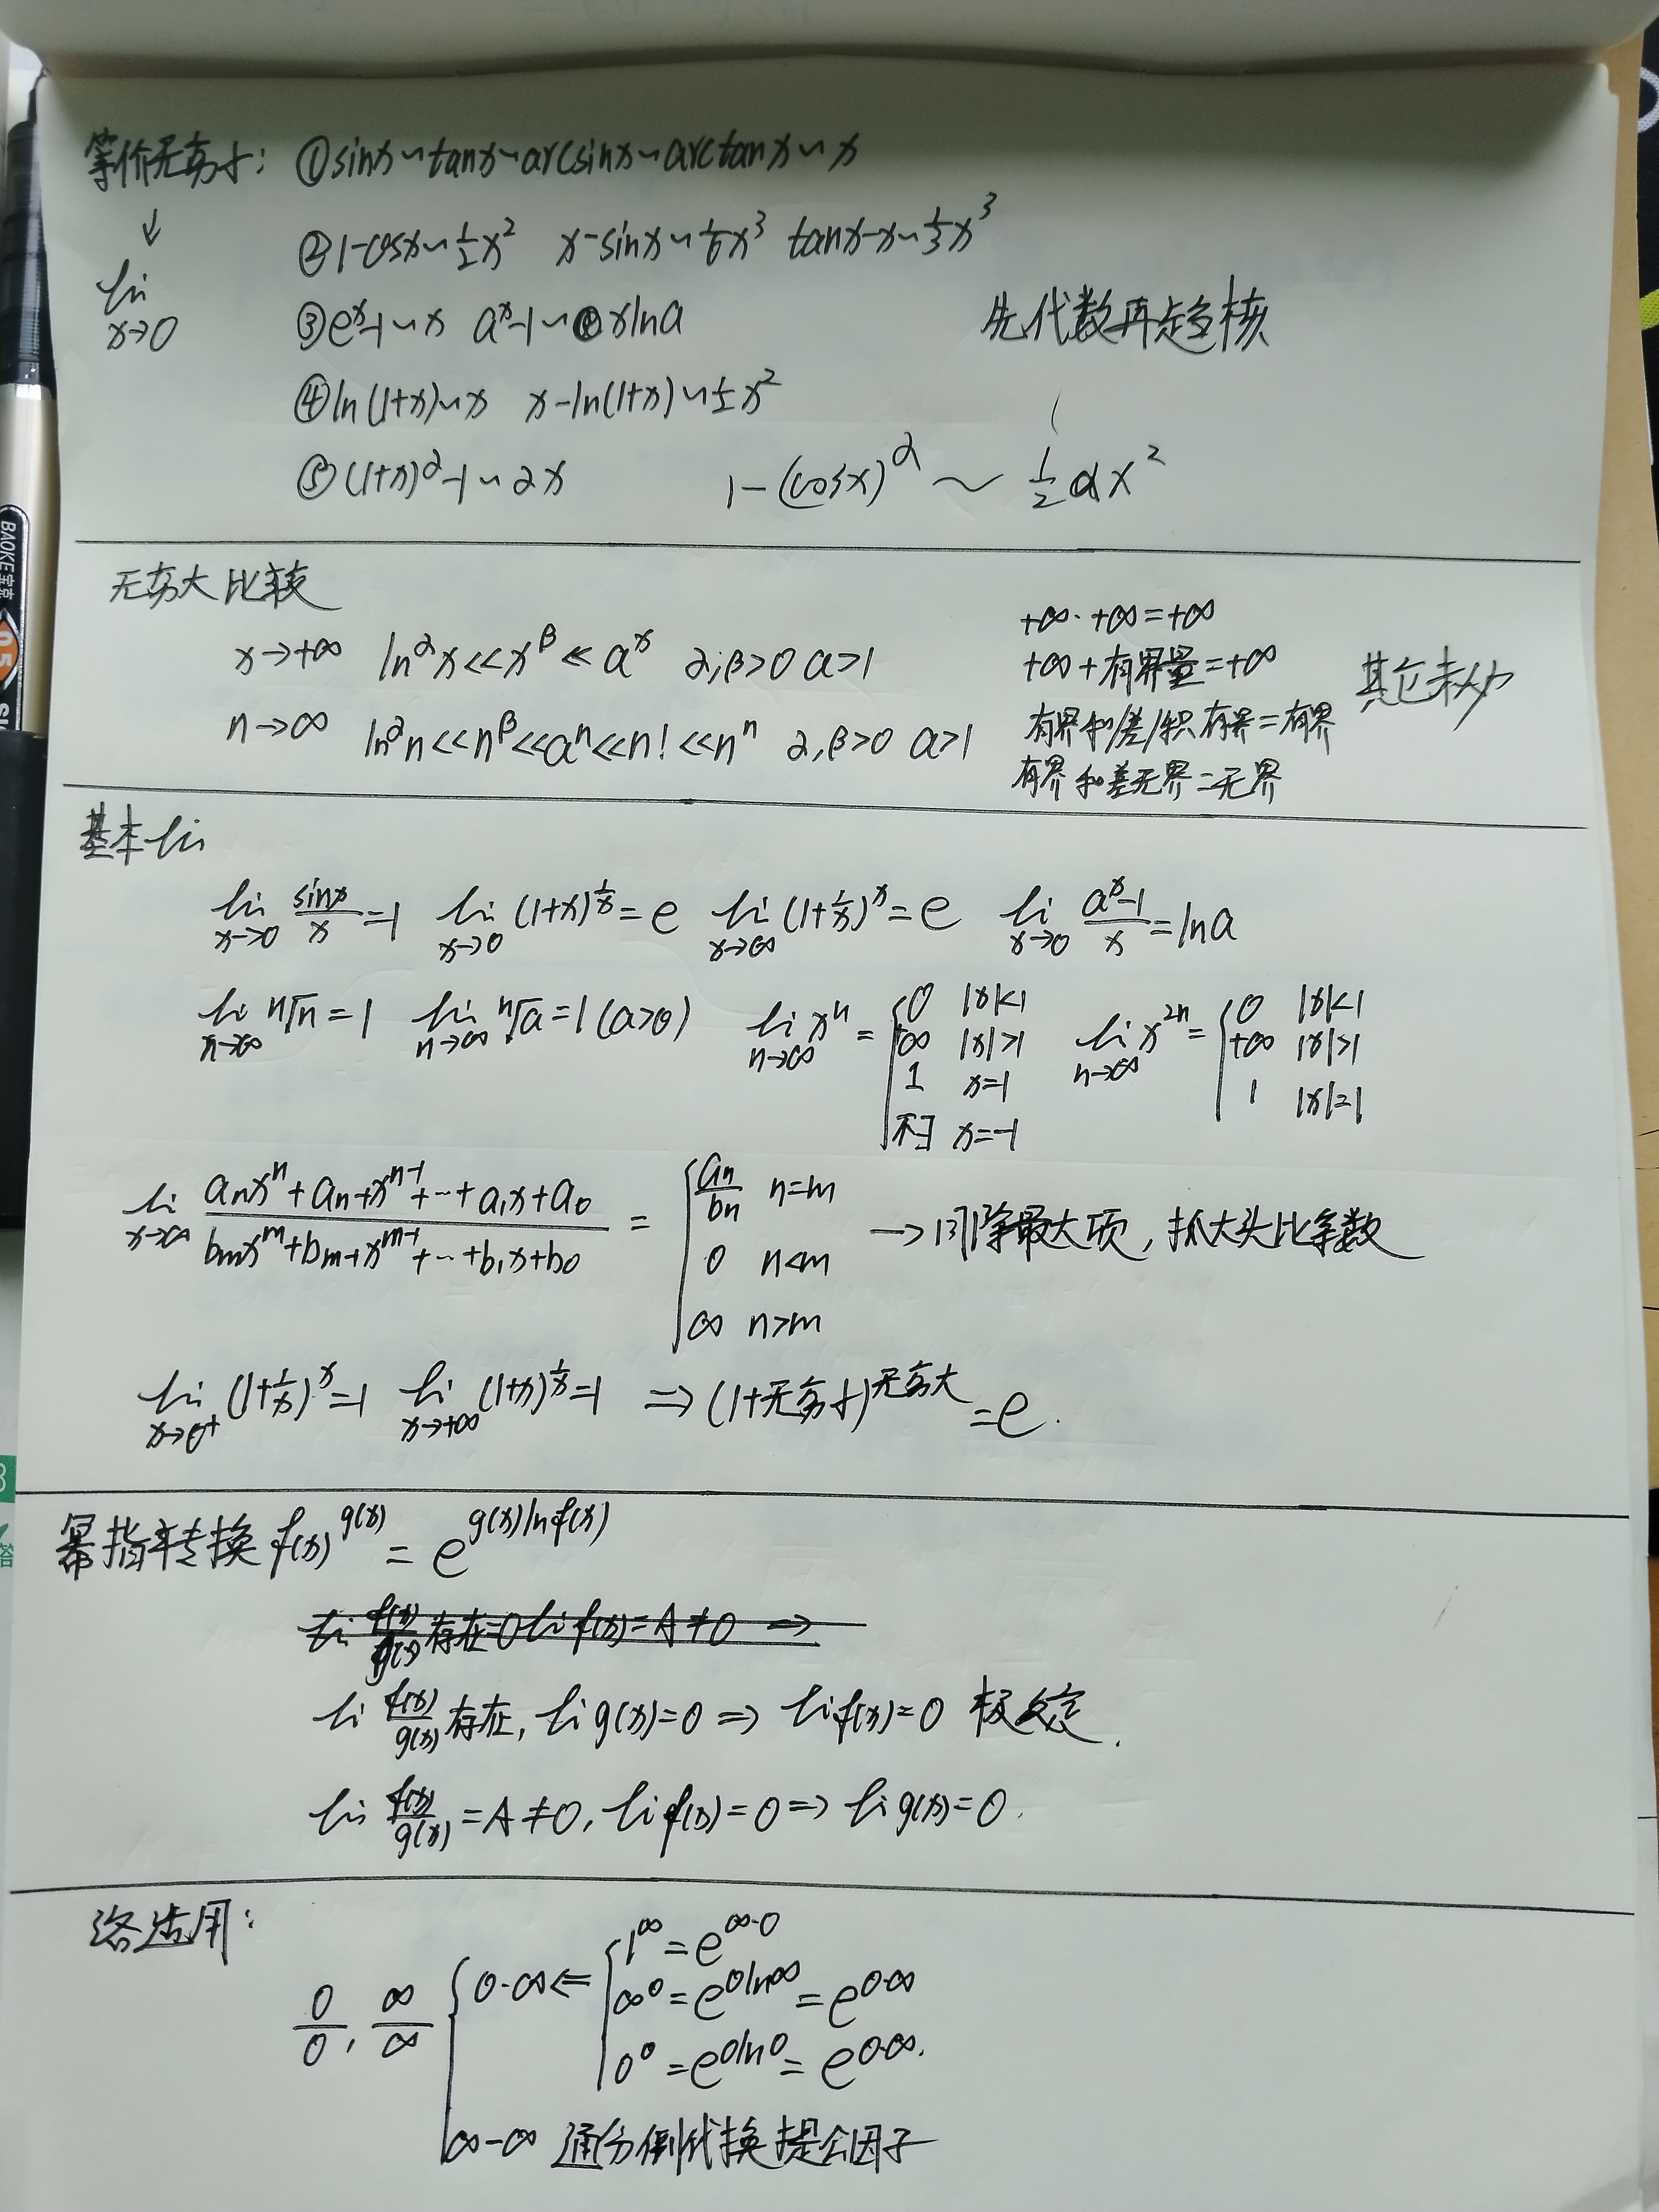 等价无穷小: ①sinx~tanx~arcsinx~arctanx~x
↓
lim x→0
②1-cosx~½x² x-sinx~⅙x³ tanx-x~⅓x³
③eˣ-1~x aˣ-1~xlna
先代数再趋
④ln(1+x)~x x-ln(1+x)~½x²
⑤(1+x)^α-1~αx 1-(cosx)^α ~ ½αx²
无穷大比较
x→+∞ ln^αx<<x^β<<a^x α,β>0 a>1
n→∞ ln^αn<<n^β<<a^n<<n!<<n^n α,β>0 a>1
+∞·+∞=+∞
+∞+有界量=+∞
有界和/差/积有界=有界
有界和差无界=无界
其它未
基本lim
lim x→0 sinx/x=1 lim x→0 (1+x)^(1/x)=e lim x→∞ (1+1/x)^x=e lim x→0 (a^x-1)/x=lna
lim n→∞ ⁿ√n=1 lim n→∞ ⁿ√a=1(a>0) lim n→∞ x^n= { 0 |x|<1 lim n→∞ x^2n= { 0 |x|<1
∞ |x|>1 +∞ |x|>1
1 x=1 1 |x|=1
不∃ x=-1
lim x→∞ (anx^n+an-1x^n-1+···+a1x+a0)/(bmx^m+bm-1x^m-1+···+b1x+b0) = { an/bn n=m
0 n<m →同除最大项,抓大头比系数
∞ n>m
lim x→0⁺ (1+1/x)^x=1 lim x→+∞ (1+x)^(1/x)=1 ⇒(1+无穷小)^无穷大=e.
幂指转换 f(x)^g(x)=e^(g(x)lnf(x))
lim f(x)/g(x)存在=0 lim f(x)=A≠0 ⇒
lim f(x)/g(x)存在,lim g(x)=0⇒lim f(x)=0
lim f(x)/g(x)=A≠0,lim f(x)=0⇒lim g(x)=0.
洛适用:
0/0, ∞/∞ { 0·∞⇐ { 1^∞=e^(∞·0)
∞^0=e^(0ln∞)=e^(0·∞)
0^0=e^(0ln0)=e^(0·∞).
∞-∞ 通分倒代换提公因子
BAOKE 宝克
0.5